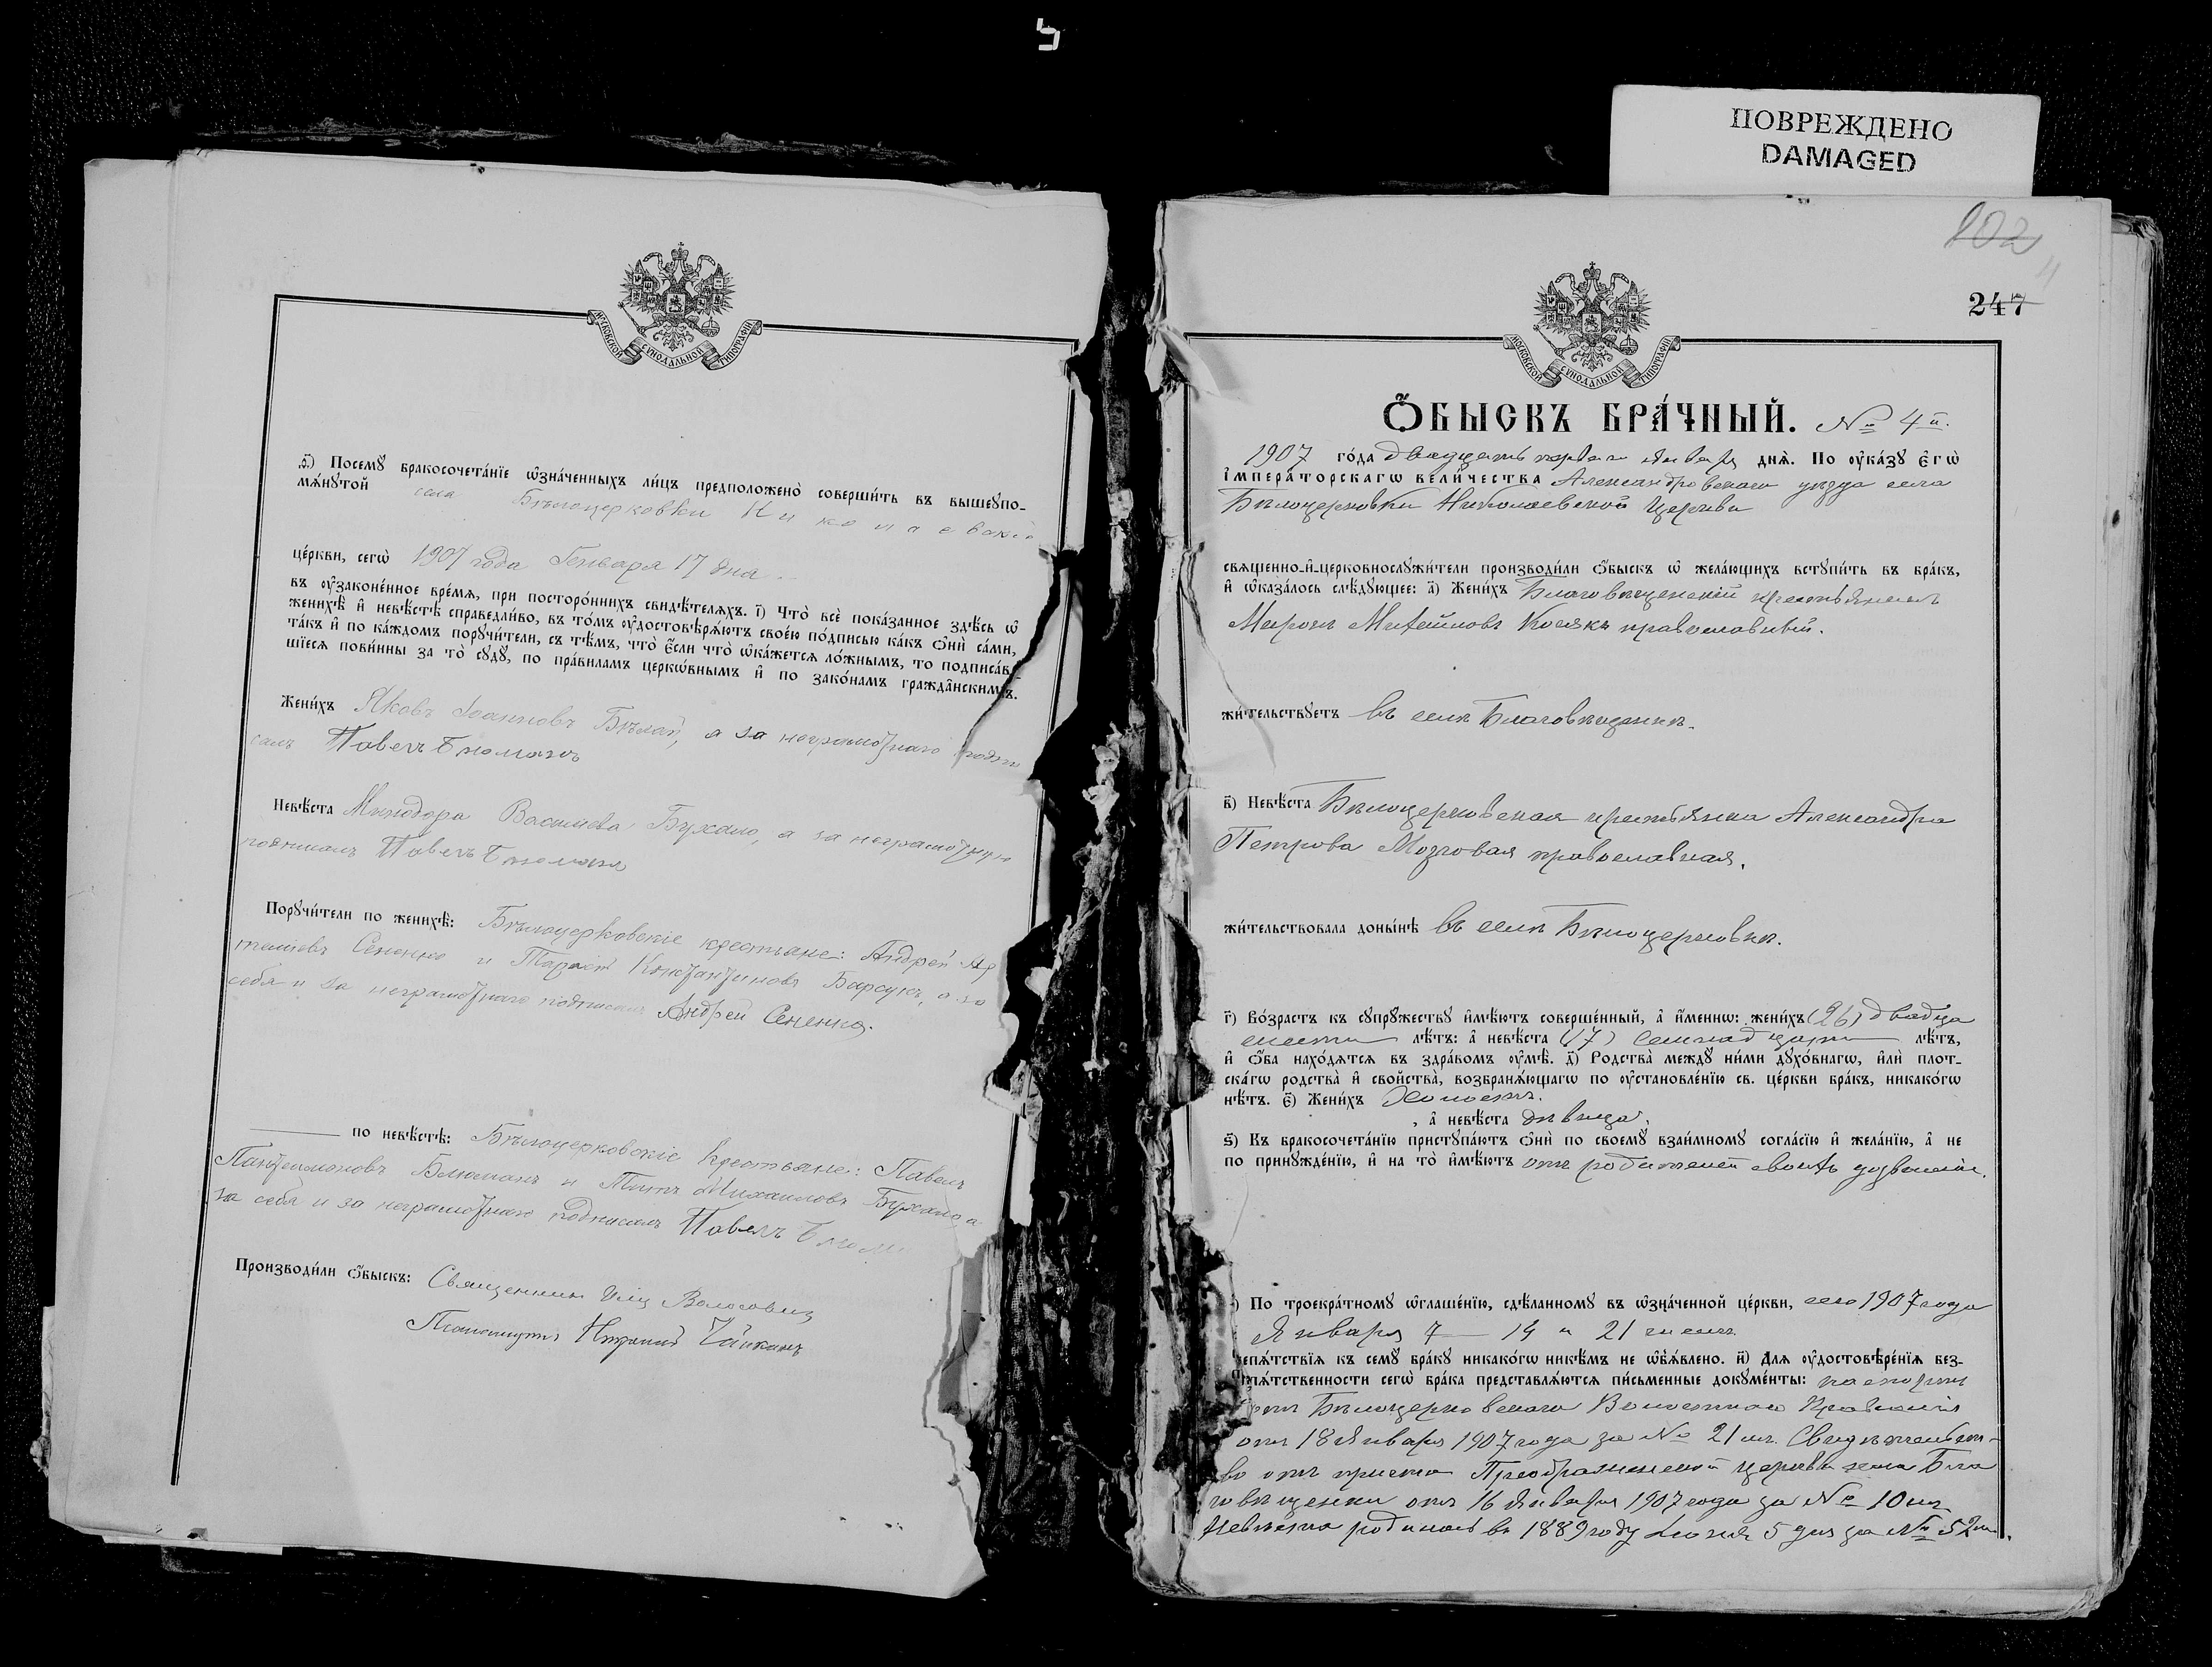 ПОВРЕЖДЕНО
DAMAGED
МОСКОВСКОЙ СѴНОДАЛЬНОЙ ТИПОГРАФІИ
Посемꙋ бракосочета́нїе ѡ҆зна́ченныхъ ли́цъ предположено̀ соверши́ть въ вышеꙋпо-
мѧ́нꙋтой села Бѣлоцерковки Николаевской
це́ркви, сегѡ̀ 1907 года Генваря 17 дня
въ ᲂу҆законе́нное вре́мѧ, при посторо́ннихъ свидѣ́телѧхъ. і҃) Что̀ всѐ пока́занное здѣ́сь ѡ҆
женихѣ̀ и҆ невѣ́стѣ справедли́во, въ то́мъ ᲂу҆достовѣрѧ́ютъ свое́ю по́дписью ка́къ ѻ҆нѝ са́ми,
та́къ и҆ по ка́ждомъ порꙋчи́тели, съ тѣ́мъ, что̀ є҆́сли что̀ ѡ҆ка́жетсѧ ло́жнымъ, то подписа́в-
шїесѧ пови́нны за то̀ сꙋдꙋ̀, по пра́виламъ церко́внымъ и҆ по зако́намъ гражда́нскимъ.
Жени́хъ Яковъ Іоанновъ Бѣлай, а за неграмотнаго подпи
салъ Павелъ Блюманъ
Невѣ́ста Минодора Васильева Бухало, а за неграмотную
подписалъ Павелъ Блюманъ
Порꙋчи́тели по женихѣ̀: Бѣлоцерковскіе крестьяне: Андрей
Сененко и Тарасъ Константиновъ Барсукъ, а за
себя и за неграмотнаго подписалъ Андрей Сененко.
по невѣ́стѣ: Бѣлоцерковскіе крестьяне: Павелъ
Пантелимоновъ Блюманъ и Титъ Михаиловъ Бухало а
за себя и за неграмотнаго подписалъ Павелъ
Производи́ли ѻ҆́быскъ: Священникъ Илія Волосовичъ
102
247
МОСКОВСКОЙ СѴНОДАЛЬНОЙ ТИПОГРАФІИ
Ѻ҆́БЫСКЪ БРА́ЧНЫЙ. № 4й.
1907 го́да двадцать перваго января днѧ̀. По ᲂу҆ка́зꙋ є҆гѡ̀
і҆мпера́торскагѡ вели́чества Александровскаго уѣзда села
Бѣлоцерковки Николаевской Церкви
свѧще́нно-и҆-церковнослꙋжи́тели производи́ли ѻ҆́быскъ ѡ҆ жела́ющихъ встꙋпи́ть въ бра́къ,
и҆ ѡ҆каза́лось слѣ́дꙋющее: а҃) Жени́хъ Благовѣщенскій крестьянинъ
Миронъ Михайловъ Кослкъ православный.
жи́тельствꙋетъ въ селѣ Благовѣщенкѣ.
в҃) Невѣ́ста Бѣлоцерковская крестьянка Александра
Петрова Мозговая православная.
жи́тельствовала доны́нѣ въ селѣ Бѣлоцерковкѣ.
г҃) Во́зрастъ къ сꙋпрꙋ́жествꙋ и҆мѣ́ютъ соверше́нный, а҆ и҆́меннѡ: жени́хъ (26) двадца
шести лѣ́тъ: а҆ невѣ́ста (17) семнадцати лѣ́тъ,
и҆ ѻ҆́ба нахо́дѧтсѧ въ здра́вомъ ᲂу҆мѣ̀. д҃) Родства̀ междꙋ ни́ми дꙋхо́внагѡ, и҆лѝ плот-
ска́гѡ родства̀ и҆ сво́йства, возбранѧ́ющагѡ по ᲂу҆становле́нїю св. це́ркви бра́къ, никако́гѡ
нѣ́тъ. є҃) Жени́хъ Холостъ.
, а҆ невѣ́ста дѣвица.
ѕ҃) Къ бракосочета́нїю пристꙋпа́ютъ ѻ҆нѝ по своемꙋ̀ взаи́мномꙋ согла́сїю и҆ жела́нїю, а҆ не
по принꙋжде́нїю, и҆ на то̀ и҆мѣ́ютъ отъ родителей своихъ дозволеніе.
По троекра́тномꙋ ѡ҆глаше́нїю, сдѣ́ланномꙋ въ ѡ҆зна́ченной це́ркви, сего 1907 года
Января 7 — 14 и 21 чиселъ
епѧ́тствїѧ къ семꙋ̀ бра́кꙋ никако́гѡ никѣ́мъ не ѡ҆б̾ѧ́влено. и҃) Длѧ ᲂу҆достовѣре́нїѧ без-
пѧ́тственности сегѡ̀ бра́ка представлѧ́ютсѧ пи́сьменные докꙋме́нты: паспортъ
отъ Бѣлоцерковскаго Волостнаго Правленія
отъ 18 Января 1907 года за № 21мъ. Свидѣтельст-
во отъ причта Преображенской церкви села Бла
говѣщенки отъ 16 Января 1907 года за № 10мъ
Невѣста родилась въ 1889 году 5 дня за № 52мъ.